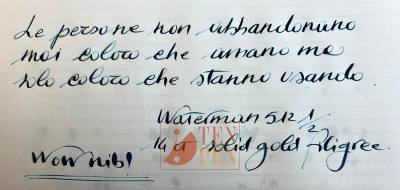 Le persone non abbandonano
mai coloro che amano ma
solo coloro che stanno usando.
Waterman 512 1/2
14 ct solid gold filigree.
Wow nib!
TEN
PEN